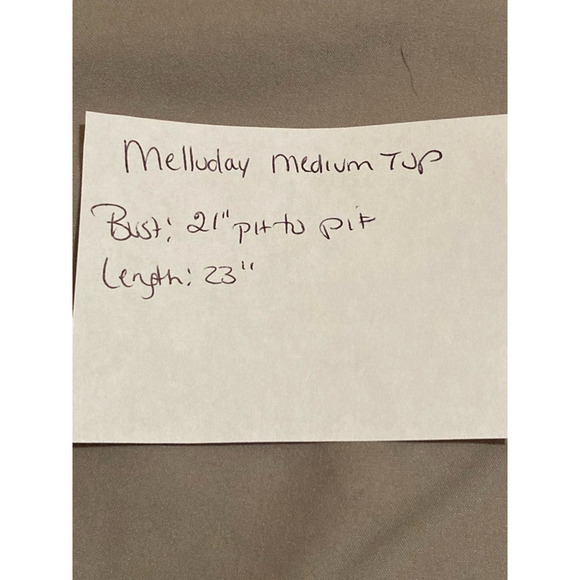 Melluday medium Top
Bust: 21" pit to pit
Length: 23"